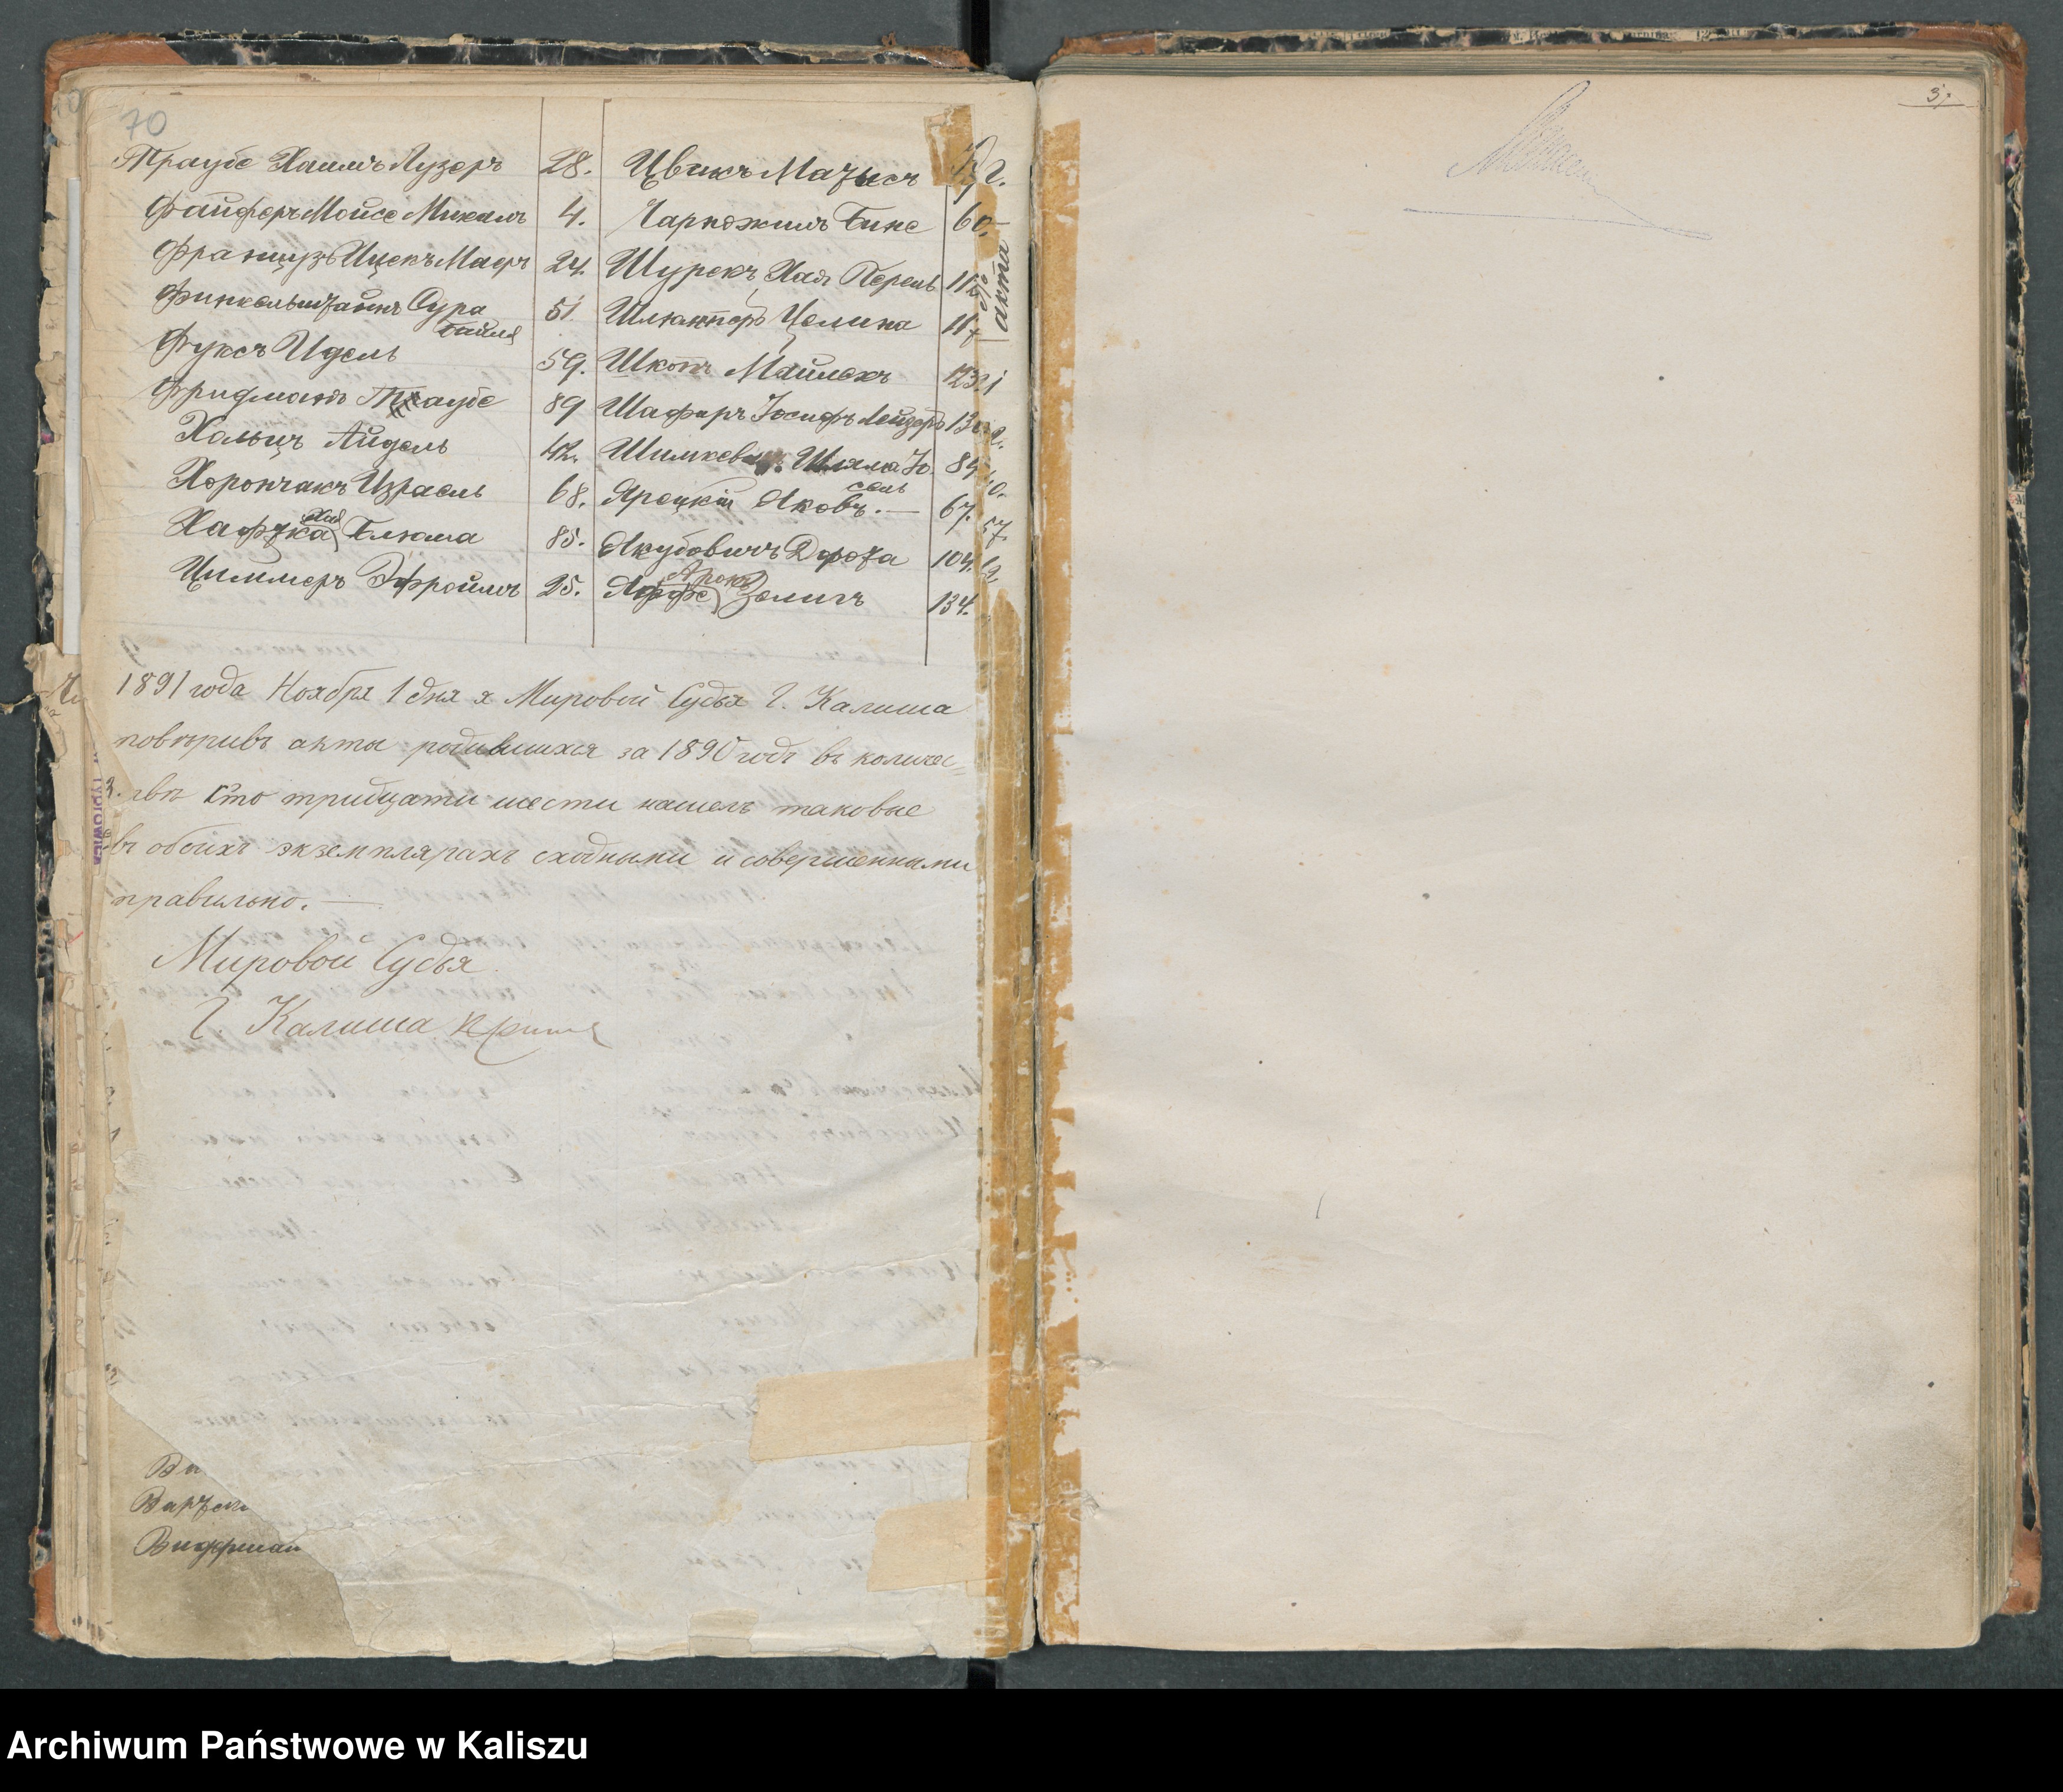 70
Траубе Хаимъ Лузеръ 28.
Файферъ Мойсе Михаль 4.
Французъ Ицекъ Маеръ 24.
Финкельштайнъ Сура Байля 51
Фуксъ Идель 59.
Фридманъ Траубе 89
Хольцъ Айдель 42.
Хорончакъ Израель 68.
Хафтка Хая Блюма 85.
Циммеръ Эфроимъ 25.
Цвикъ Матысъ
Чаркожилъ Бине 60.
Шурекъ Хая Перель
Шлюмперъ Целина
Шкотъ Майлехъ 123.
Шафиръ Іосифъ Лейзеръ
Шимкевичъ Шляма Іосель
Яроцкій Яковъ. — 67.
Якубовичъ Дорота 104.
Яффе Аронъ Зелигъ 134.
№ акта
1891 года Ноября 1 дня я Мировой Судья Г. Калиша
повѣривъ акты родившихся за 1890 годъ въ количес=
твѣ Сто тридцати шести нашелъ таковые
въ обоихъ экземплярахъ сходными и совершенными
правильно. —
Мировой Судья
Г. Калиша
Ви
Видфман
37
Archiwum Państwowe w Kaliszu